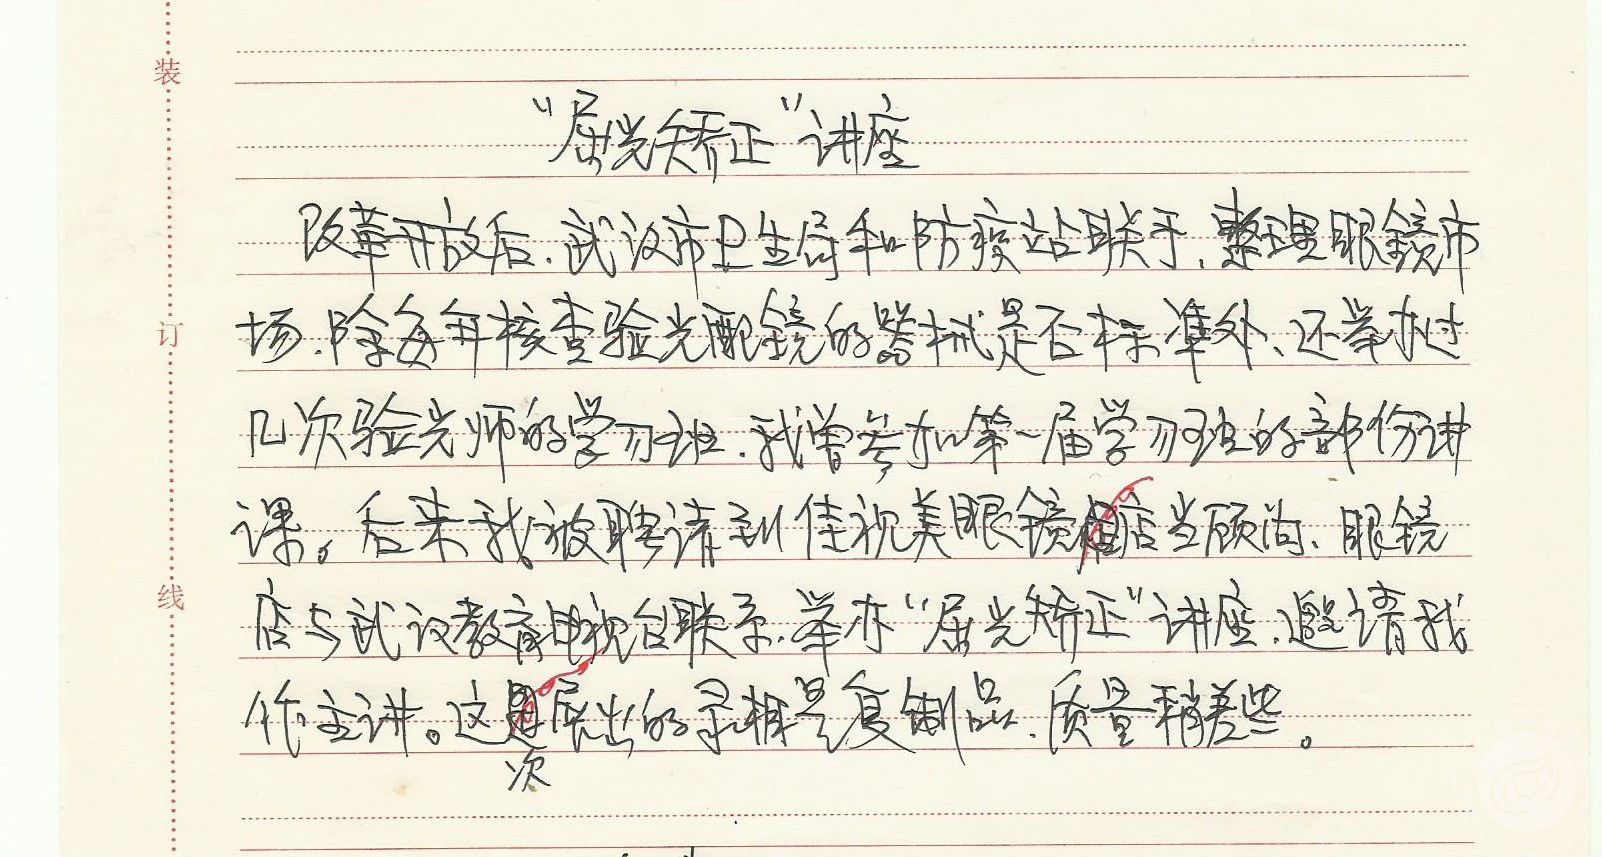 装
订
线
“屈光矫正”讲座
改革开放后、武汉市卫生局和防疫站联手、整理眼镜市
场、除每年核查验光配镜的器械是否标准外、还举办过
几次验光师的学习班、我曾参加第一届学习班的部份讲
课。后来我被聘请到佳视美眼镜店当顾问、眼镜
店与武汉教育电视台联系、举办“屈光矫正”讲座、邀请我
作主讲。这次展出的录相是复制品、质量稍差些。